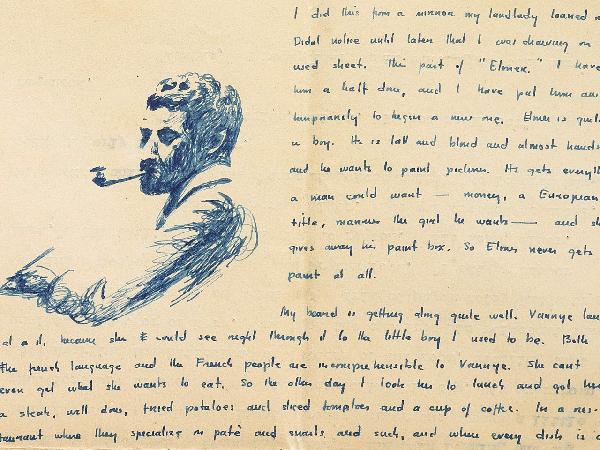 I did this from a mirror my landlady loaned
Didnt notice until later that I was drawing on
used sheet. This part of "Elmer." I have
him a half done, and I have put him
temporarily to begin a new one. Elmer is
a boy. He is tall and blond and almost hands
and he wants to paint pictures. He gets everyth
a man could want — money, a European
title, marries the girl he wants — and sh
gives away his paint box. So Elmer never gets
paint at all.
My beard is getting along quite well. Vannye lau
at it, because she could see right through it to the little boy I used to be. Both
the french language and the French people are incomprehensible to Vannye. She cant
even get what she wants to eat. So the other day I took her to lunch and got her
a steak, well done, fried potatoes and sliced tomatoes and a cup of coffee. In a res-
taurant where they specialize in paté and snails and such, and where every dish is a